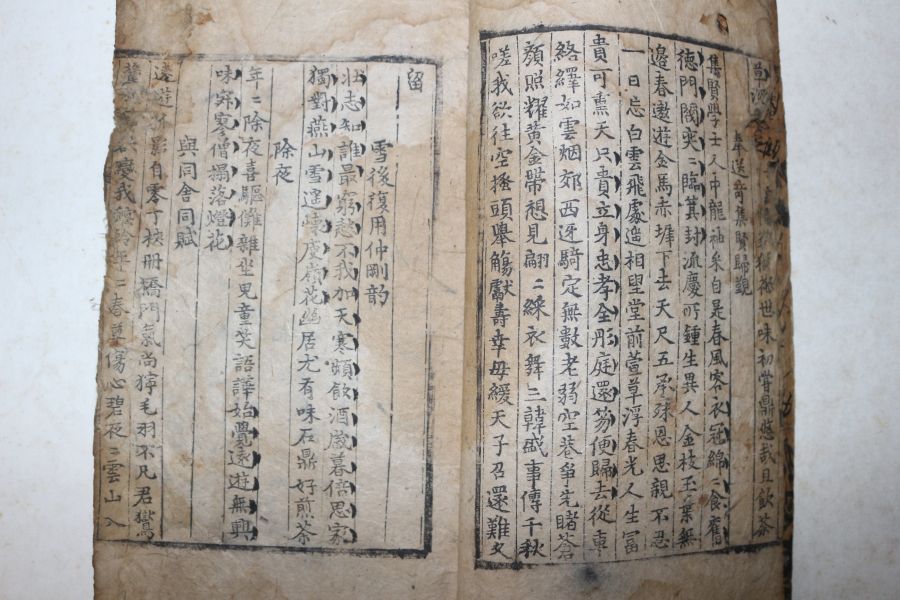 世味初嘗鼎悠哉且飲茶
集賢歸覲
集賢學士人中龍神采自是春風容衣冠綿〻食舊
德門閥奕〻臨箕封流慶所鍾生異人金枝玉葉無
邊春遨遊金馬赤墀下去天尺五承殊恩思親不忍
一日忘白雲飛處遙相望堂前萱草浮春光人生富
貴可熏天只貴立身忠孝全彤庭還笏便歸去從車
絡繹如雲烟郊西迓騎定無數老弱空巷爭先睹蒼
顔照耀黃金帶想見翩〻綵衣舞三韓盛事傳千秋
嗟我欲往空搔頭擧觴獻壽幸毋緩天子召還難久
留
雪後復用仲剛韵
壯志知誰最窮愁不我加天寒頗飲酒歲暮倍思家
獨對燕山雪遙憐庾嶺花幽居尤有味石鼎好煎茶
除夜
年〻除夜喜驅儺雜坐兒童笑語譁始覺遠遊無興
味寂寥僧榻落燈花
與同舍同賦
遠遊影自零丁挾冊橋門氣尚獰毛羽不凡君鸑
我鶺鴒年〻春草傷心碧夜〻雲山入